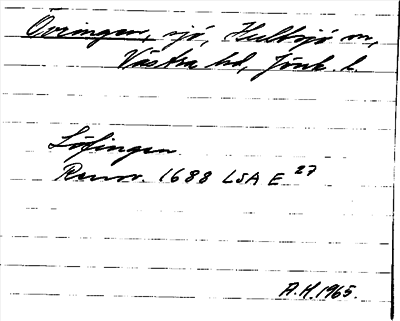 Övingen, sjö, Hultsjö sn,
Västra hd, Jönk. l.
Löfingen
Renov. 1688 LSA E 27
A.H. 1965.